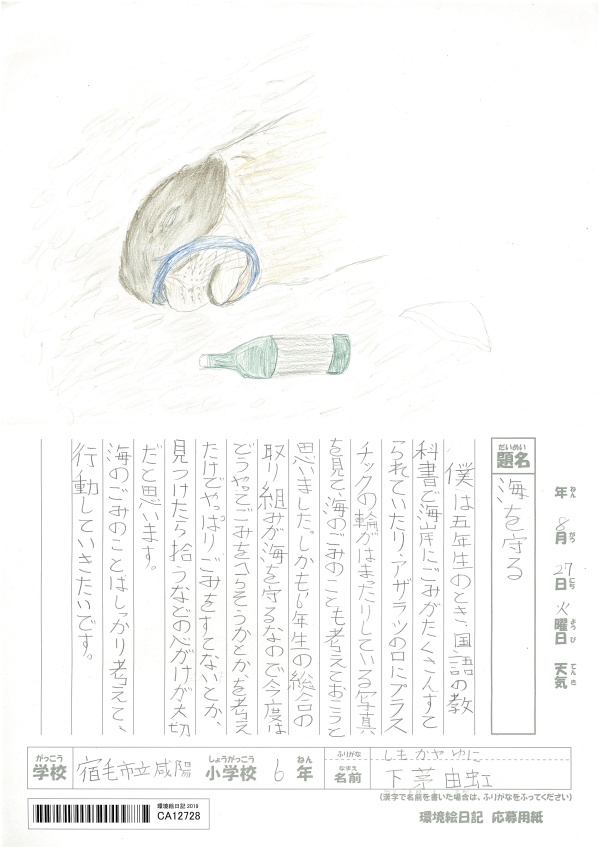 年 8月 27日 火曜日 天気
ねん がつ にち ようび てんき
だいめい
題名 海を守る
僕は五年生のとき、国語の教
科書で海岸にごみがたくさんすて
られていたり、アザラシの口にプラス
チックの輪がはまったりしている写真
を見て、海のごみのことも考えておこうと
思いました。しかも6年生の総合の
取り組みが海を守るなので今度は
どうやってごみをへらそうかとか、を考え
たけでやっぱりごみをすてないとか、
見つけたら拾うなどの心がけが大切
だと思います。
海のごみのことはしっかり考えて、
行動していきたいです。
がっこう しょうがっこう ねん
学校 宿毛市立咸陽 小学校 6年
ふりがな しもかやゆに
なまえ
名前 下茅由虹
(漢字で名前を書いた場合は、ふりがなをふってください)
環境絵日記 2019
CA12728
環境絵日記 応募用紙